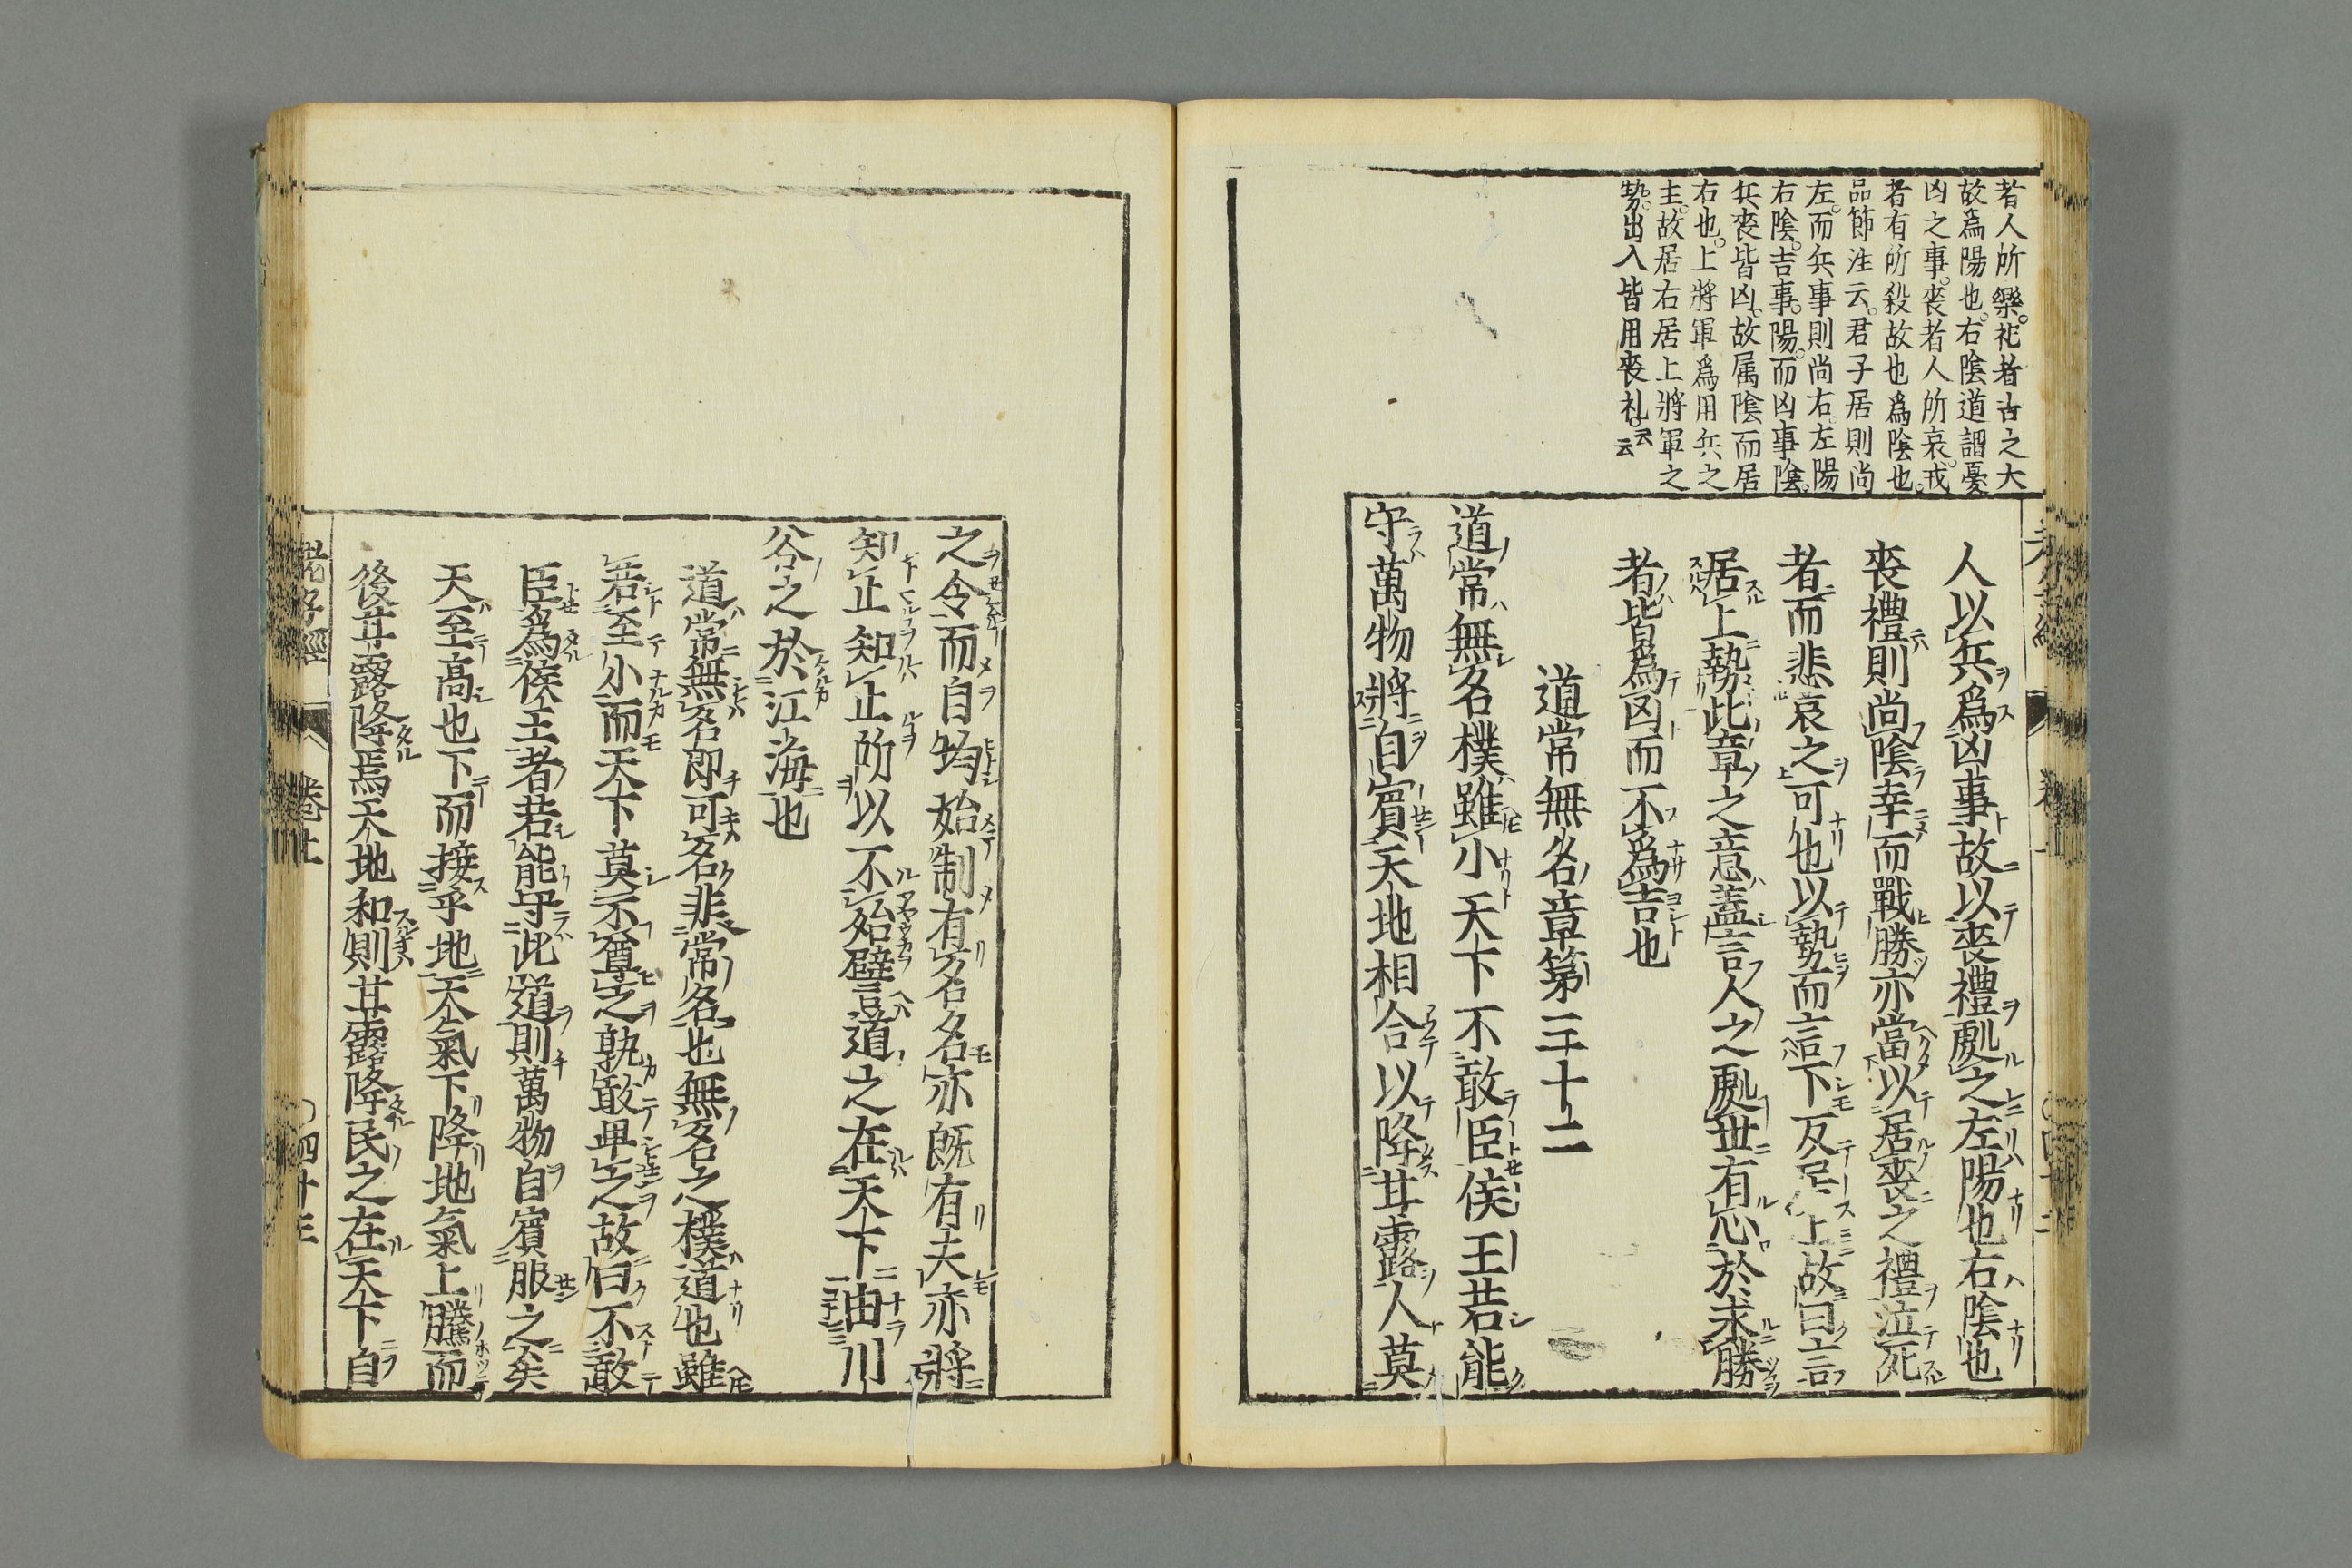 者人所樂祀者古之大
故爲陽也。右陰道謂憂
凶之事。喪者人所哀。戎
者有所殺故也爲陰也。
品節注云。君子居則尚
左。而兵事則尚右。左陽
右陰。吉事。陽。而凶事陰。
兵喪皆凶。故属陰而居
右也。上將軍爲用兵之
主。故居右居上將軍之
勢。出入皆用喪礼。云云
人以兵爲凶事故以喪禮處之左陽也右陰也
喪禮則尚陰幸而戰勝亦當以居喪之禮泣死
者而悲哀之可也以勢而言下反居上故曰言
居上勢此章之意蓋言人之處世有心於求勝
者皆爲凶而不爲吉也
道常無名章第三十二
道常無名樸雖小天下不敢臣侯王若能
守萬物將自賓天地相合以降甘露人莫
之令而自均始制有名名亦既有夫亦將
知止知止所以不殆譬道之在天下由川
谷之於江海也
道常無名即可名非常名也無名之樸道也雖
若至小而天下莫不尊之孰敢卑之故曰不敢
臣爲侯王者若能守此道則萬物自賓服之矣
天至高也下而接乎地天氣下降地氣上騰而
後甘露降焉天地和則甘露降民之在天下自
老子經 卷上 〇四十三